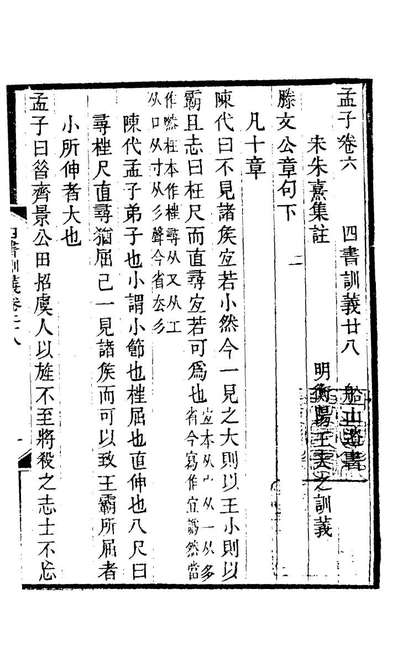 孟子卷六 四書訓義廿八 船山遺書
宋朱熹集註 明衡陽王夫之訓義
滕文公章句下
凡十章
陳代曰不見諸矦宐若小然今一見之大則以王小則以
霸且志曰枉尺而直尋宐若可爲也
宐本从宀从一从多
省今寫作宜譌然當
作嘫枉本作桩尋从又从工
从口从寸从彡聲今省去彡
陳代孟子弟子也小謂小節也桩屈也直伸也八尺曰
尋桩尺直尋猶屈己一見諸矦而可以致王霸所屈者
小所伸者大也
孟子曰昝齊景公田招虞人以旌不至將殺之志士不忘
四書訓義卷廿八 一